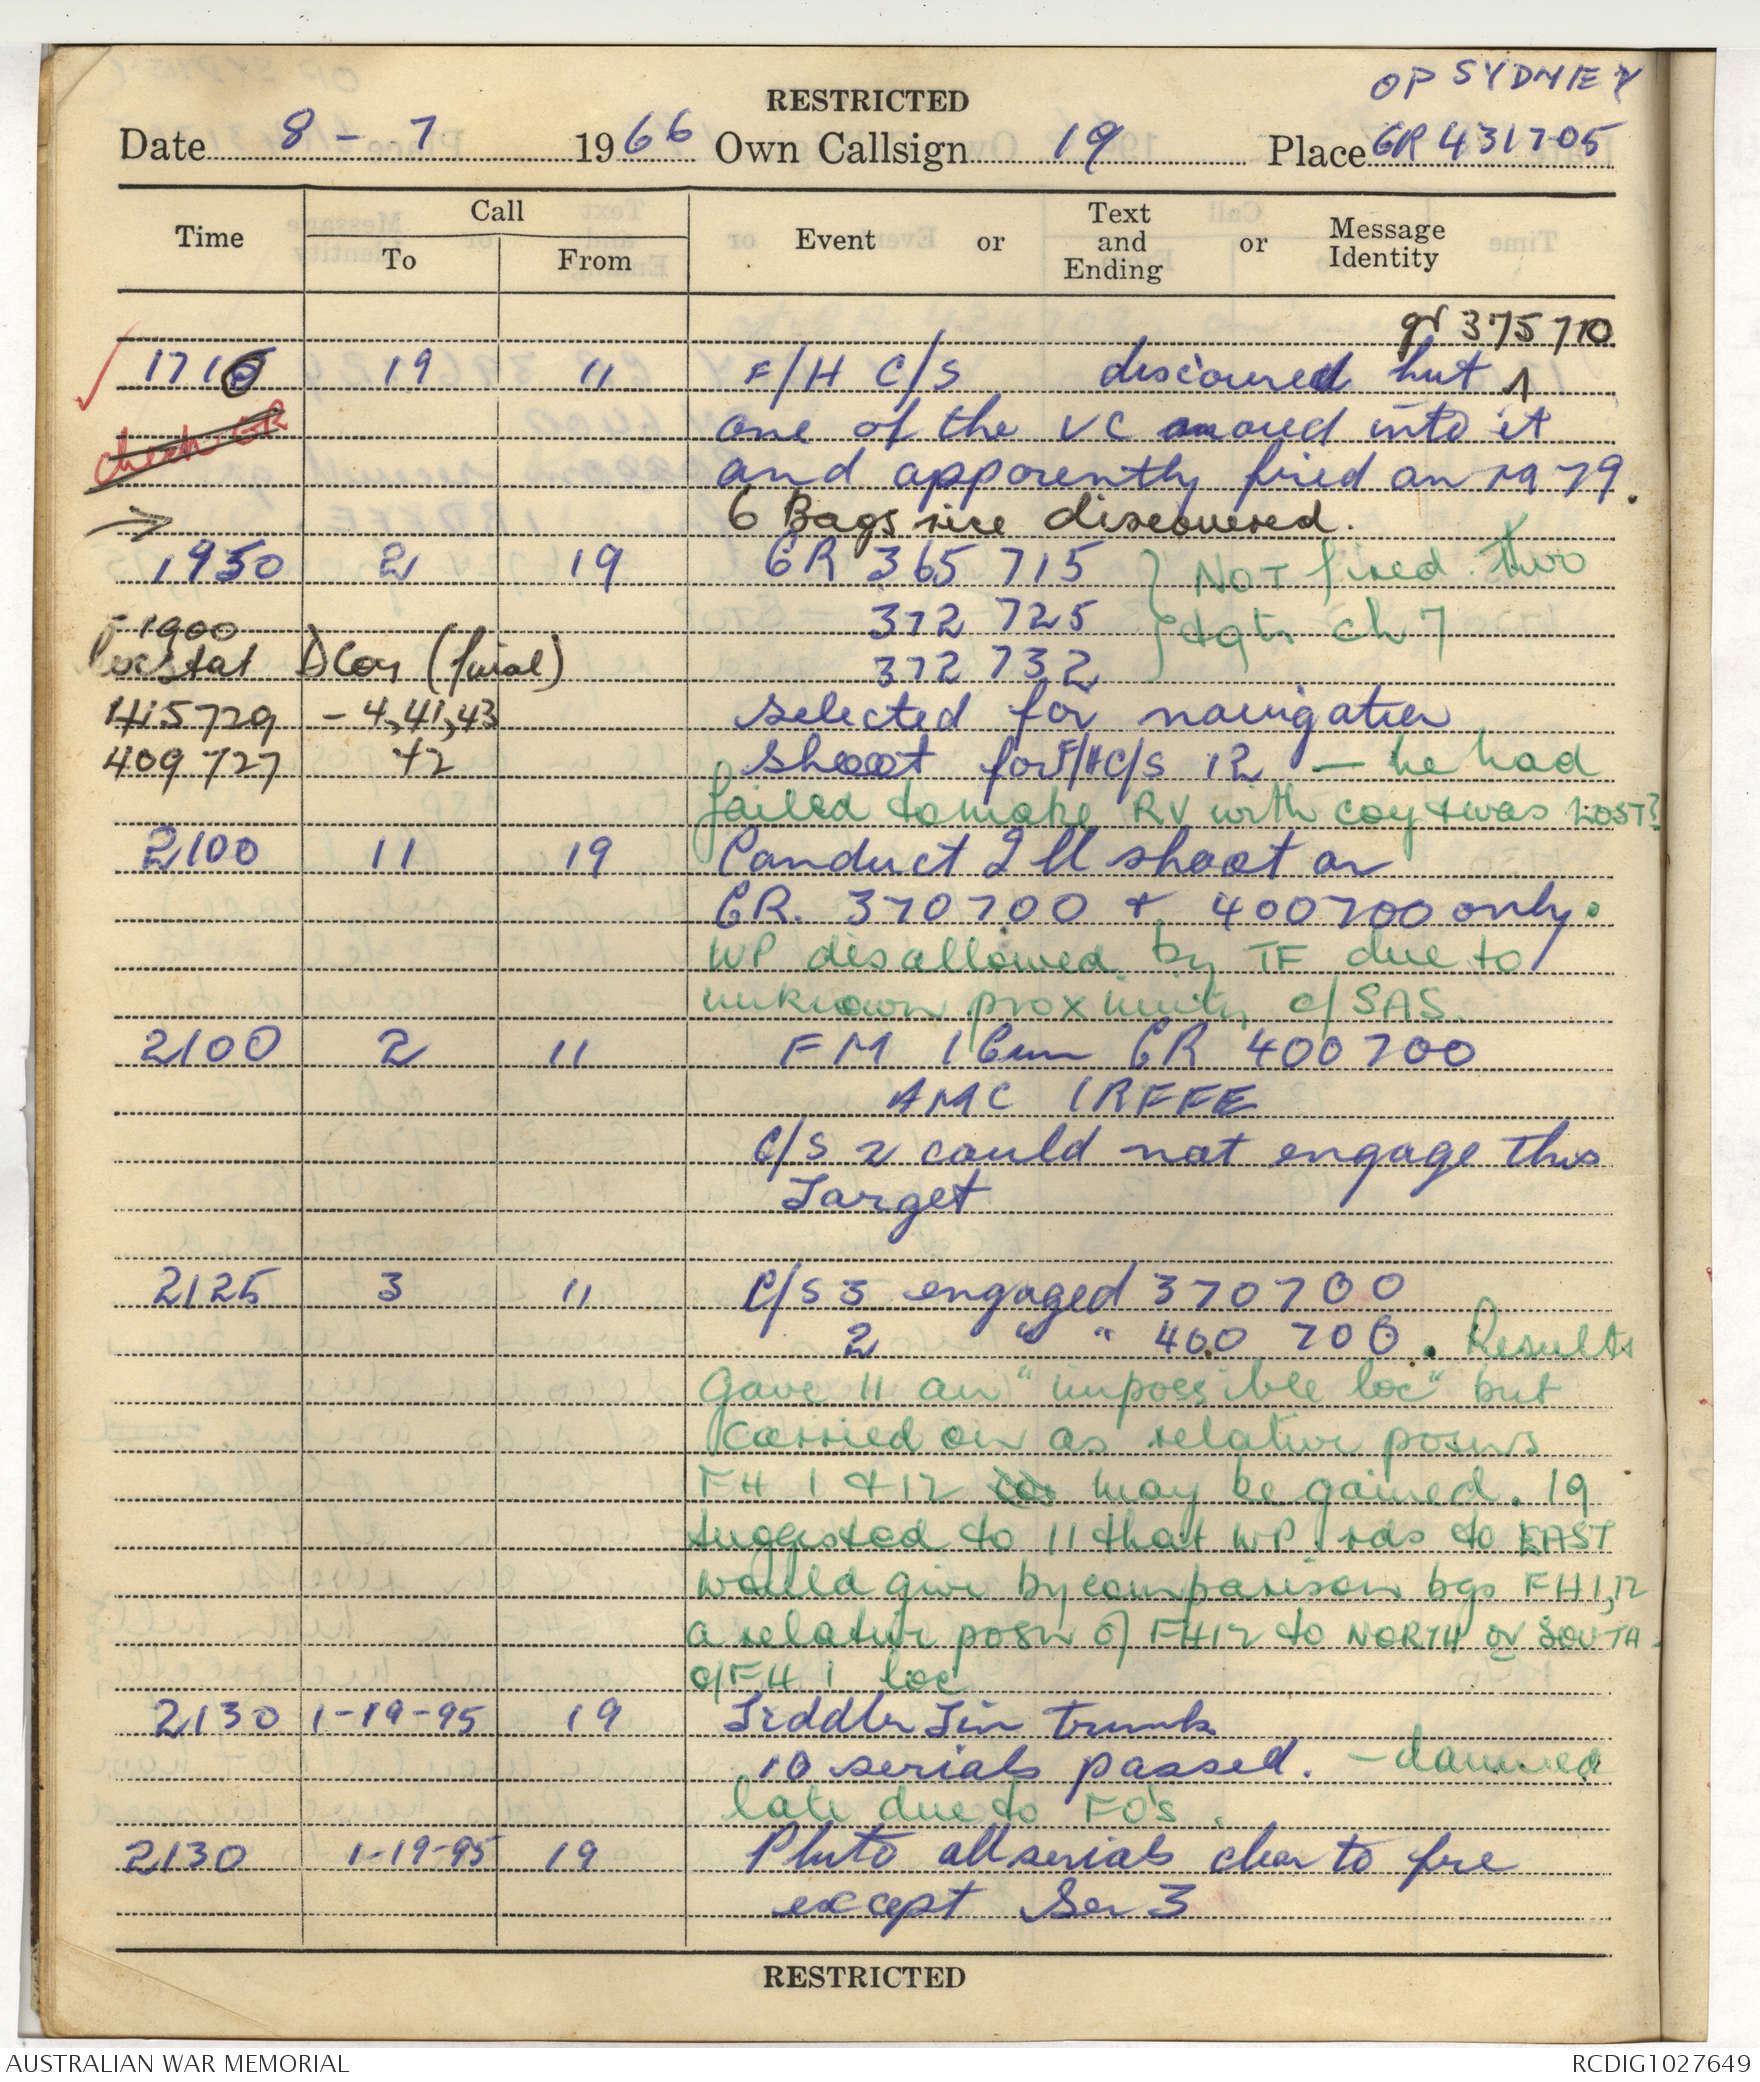 OP SYDNEY
RESTRICTED
Date 8 - 7 1966 Own Callsign 19 Place GR 431705
Time Call To From Event or Text and Ending or Message Identity
gr 375710
1710 19 11 F/H C/S discoured hut
one of the VC moved into it
check GR
and apparently fired an M79.
6 Bags rice discovered.
1950 2 19 GR 365 715 NOT fired. two
372 725 tgts ch 7
372 732
1900
Locstat D Coy (final)
415729 - 4,41,43 selected for navigation
409 727 42 shoot for F/H C/S 12 - he had
failed to make RV with coy & was LOST?
2100 11 19 Conduct Ill shoot on
GR. 370700 + 400700 only.
WP disallowed by TF due to
unknown proximity c/SAS.
2100 2 11 FM 1 Gun GR 400700
AMC 1RFFE
C/S 2 could not engage this
Target
2125 3 11 C/S 3 engaged 370700
2 " " 400 700. Results
gave 11 an "impossible loc" but
carried on as relative posns
FH 1 & 12 may be gained. 19
suggested to 11 that WP rds to EAST
would give by comparison bgs FH1,12
a relative posn of FH12 to NORTH or SOUTH
of FH 1 loc
2130 1-19-95 19 Fiddler Tin Trunk
10 serials passed. - damned
late due to FO's.
2130 1-19-95 19 Pluto all serials clear to fire
except Ser 3
RESTRICTED
AUSTRALIAN WAR MEMORIAL RCDIG1027649